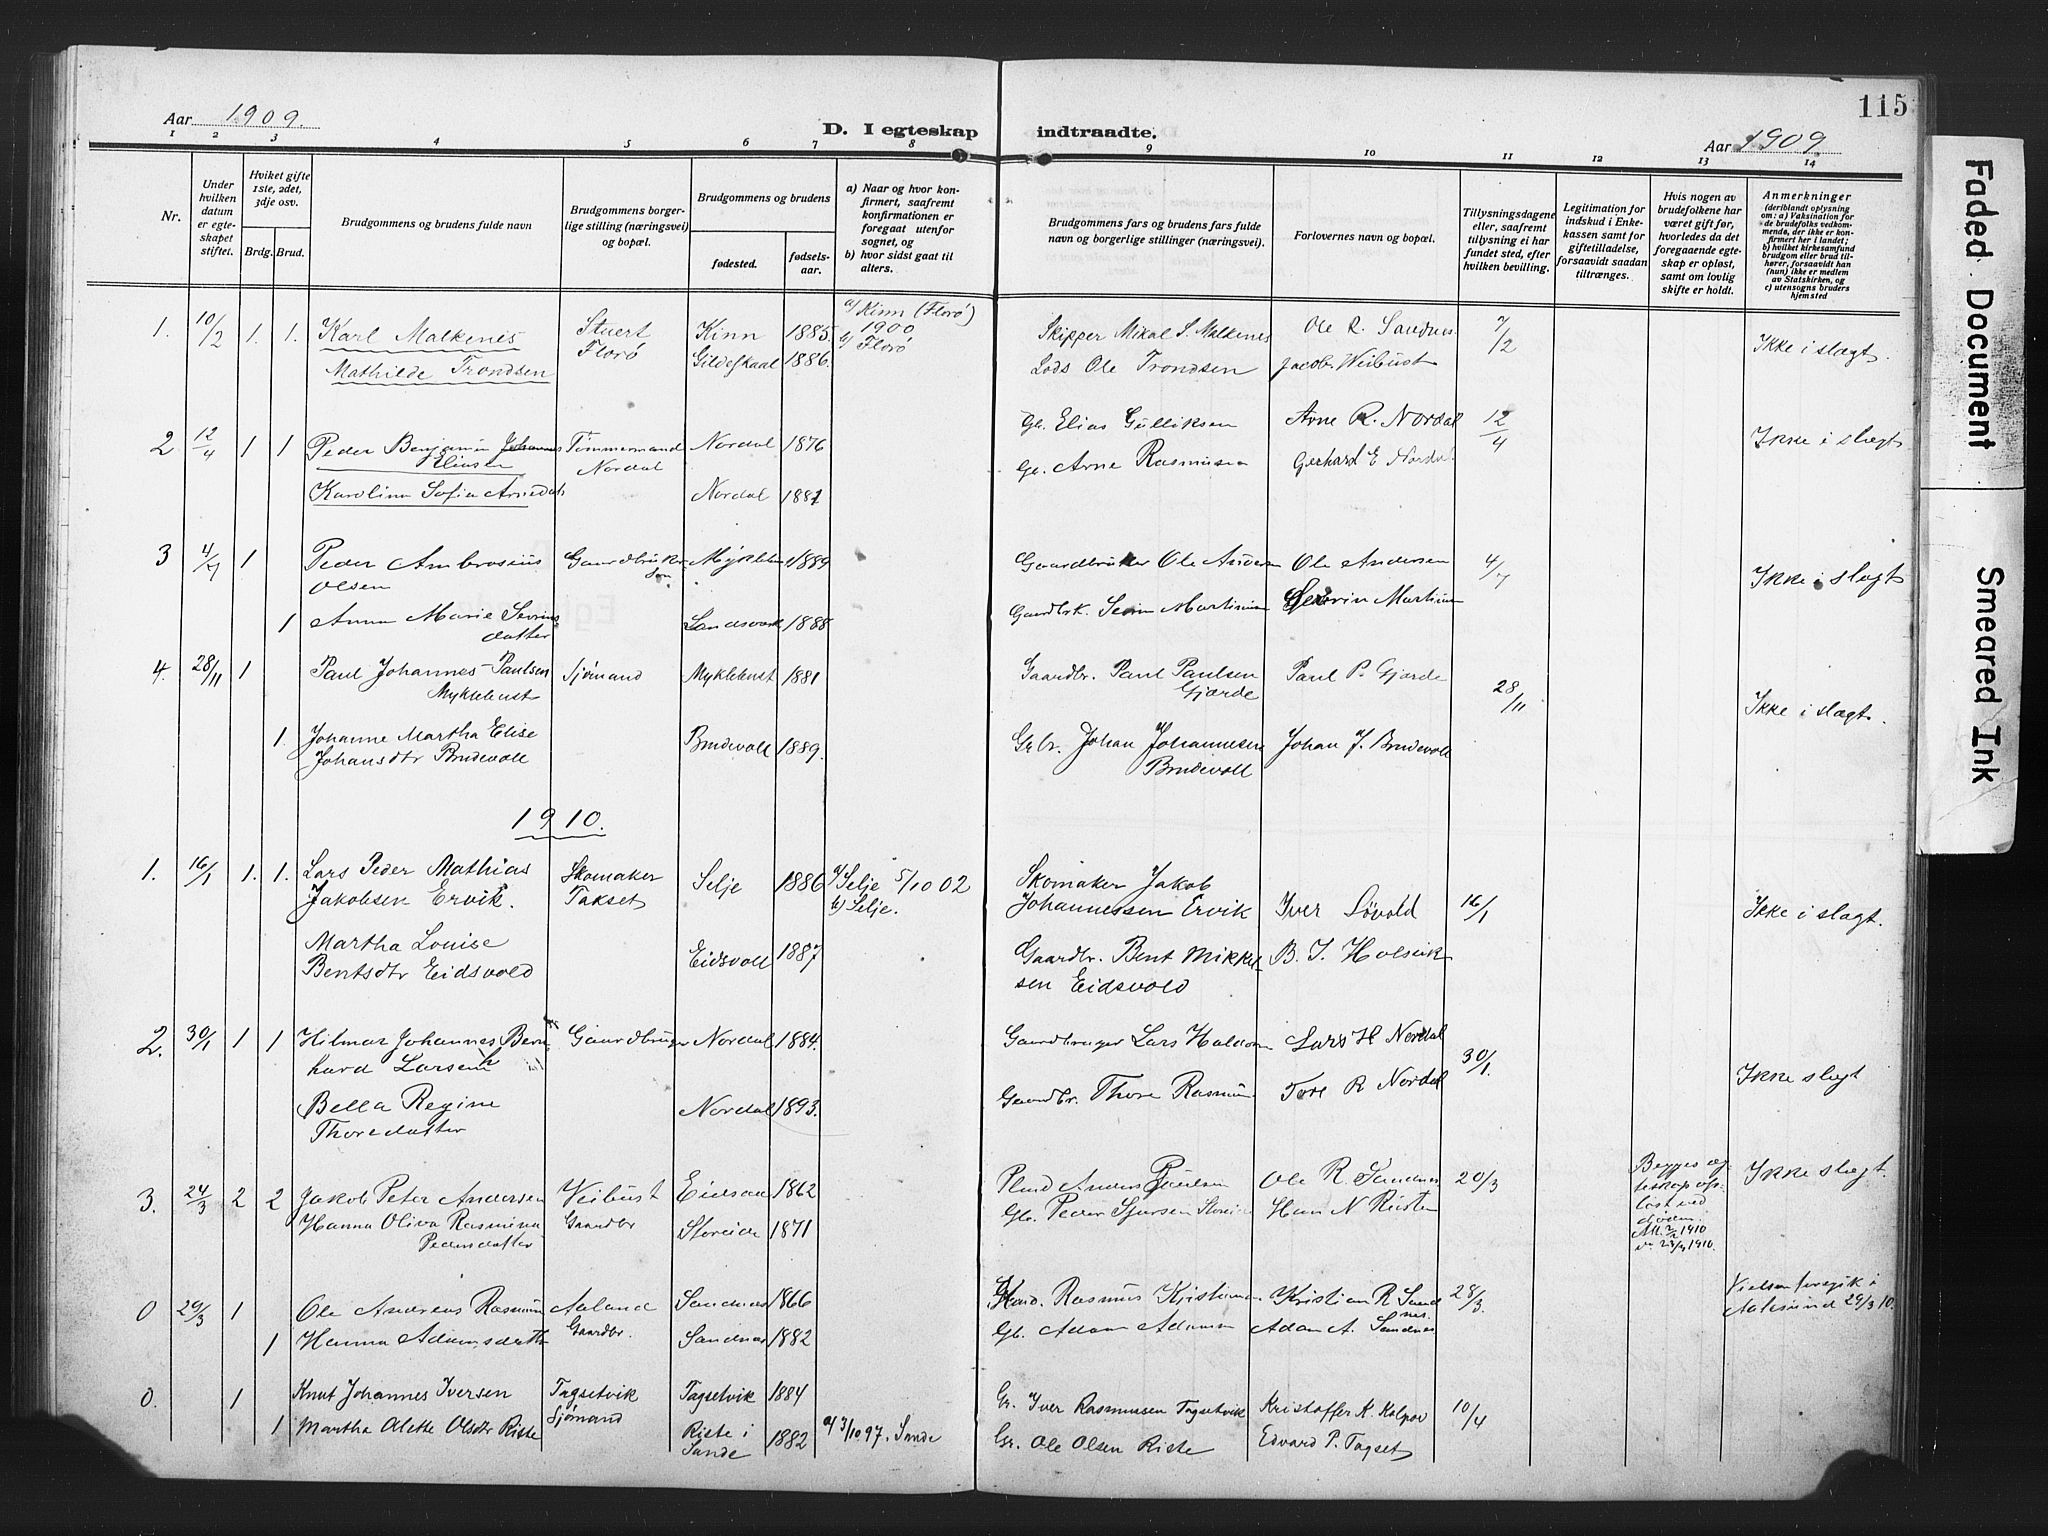 115
Aar 1909.
D. I egteskap indtraadte.
Aar 1909
1 2 3 4 5 6 7 8 9 10 11 12 13 14
Nr.
Under hvilken datum er egteskapet stiftet.
Hviket gifte 1ste, 2det, 3dje osv.
Brdg. Brud.
Brudgommens og brudens fulde navn
Brudgommens borgerlige stilling (næringsvei) og bopæl.
Brudgommens og brudens
fødested.
fødselsaar.
a) Naar og hvor konfirmert, saafremt konfirmationen er foregaat utenfor sognet, og
b) hvor sidst gaat til alters.
Brudgommens fars og brudens fars fulde navn og borgerlige stillinger (næringsvei).
Forlovernes navn og bopæl.
Tillysningsdagene eller, saafremt tillysning ei har fundet sted, efter hvilken bevilling.
Legitimation for indskud i Enkekassen samt for giftetilladelse, forsaavidt saadan tiltrænges.
Hvis nogen av brudefolkene har været gift før, hvorledes da det foregaaende egteskap er opløst, samt om lovlig skifte er holdt.
Anmerkninger
(deriblandt oplysning om: a) Vaksination for de brudefolks vedkommende, der ikke er konfirmert her i landet; b) hvilket kirkesamfund brudgom eller brud tilhører, forsaavidt han (hun) ikke er medlem av Statskirken, og c) utensogns bruders hjemsted
1. 10/2 1. 1. Karl Malkenes Stuert Florø Kinn 1885. a) Kinn (Florø) 1900 b) Florø Skipper Mikal S. Malkenes Ole R. Sandnes 7/2 Ikke i slægt.
Mathilde Trondsen Gildeskaal 1886. Lods Ole Trondsen Jacob Weibust
2 12/4 1 1 Peder Benjamin Johannes Eliassen Tømmermand Nordal Nordal 1876 Gb. Elias Gulliksen Arne R. Nordal 12/4 Ikke i slegt
Karolina Sofia Arnedatr Nordal 1887 Gb. Arne Rasmusen Gerhard E Nordal
3 4/7 1 Peder Ambrosius Olsen Gaardbruker Søn Myklebu 1889 Gaardbruker Ole Andersen Ole Andersen 4/7 Ikke i slægt
1 Anna Marie Sevrinsdatter Sandsvæk 1888 Gaardbrk. Sevrin Martinius Severin Martinus
4. 28/11 1 Paul Johannes Paulsen Myklebust Sjømand Myklebust 1881 Gaardbr. Paul Paulsen Gjerde Paul P. Gjerde 28/11 Ikke i slægt.
1. Johanne Martha Elise Johansdtr Brudevoll Brudevoll 1889. Gbr. Johan Johannesen Brudevoll Johan J. Brudevoll
1910.
1. 16/1 1. 1. Lars Peder Mathias Jakobsen Ervik. Skomaker Takset Selje 1886 a) Selje 5/10 02 b) Selje. Skomaker Jakob Johannessen Ervik Iver Løvold 16/1 Ikke i slagt.
Martha Louise Bentsdtr Eidsvold Eidsvoll 1887 Gaardbr. Bent Mikkelsen Eidsvold B. J. Holsvik
2. 30/1 1 1 Hilmar Johannes Bernhard Larsen Gaardbruger Nordal 1884. Gaardbruger Lars Haldorsen Lars H Nordal 30/1. Ikke slegt
Bella Regine Thoredatter Nordal 1893. Gaardbr. Thore Rasmusen Tore R Nordal
3. 24/3 2 2 Jakob Peter Andersen Veibust Gaardbr Eidsaa 1862 Anders Paulsen Ole R. Sandnes 20/3 Begges egteskap opløst ved døden. 1910 1910. Ikke slegt
Hanna Oliva Rasmina Pedersdatter Storeide 1871 Gb. Peder Sjursen Storeide Hans N Risten
0 29/3 1 Ole Andreas Rasmusen Aaland Gaardbr. Sandnes 1866 Rasmus Kristiansen Kristian R Sandnes. 28/3. Vielsen foregik i Aalesund 29/3 10.
1 Hanna Adamsdatter Sandnes 1882 Gb. Adam Adamsen Adam A. Sandnes
0. 1 Knut Johannes Iversen Tagsetvik Sjømand Tagsetvik 1884 Gr. Iver Rasmussen Tagsetvik Kristoffer K. Kolpus 10/4
1 Martha Alette Olsdtr Riste Riste i Sande 1882 a) 3/10 97. Sande Gr. Ole Olsen Riste Edvard P. Tagset
Faded Document
Smeared Ink